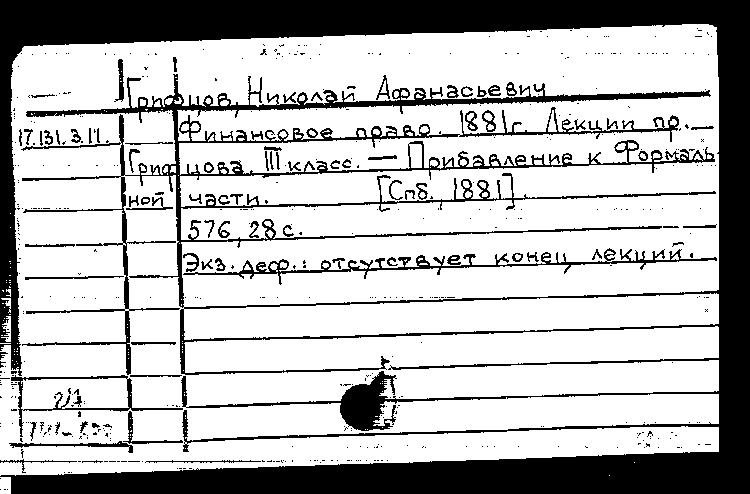 Грифцов, Николай Афанасьевич
17.131.3.11. Финансовое право. 1881г. Лекции пр.
Грифцова. III класс. — Прибавление к Формаль
ной части. [Спб., 1881].
576, 28 с.
Экз. деф.: отсутствует конец лекций.